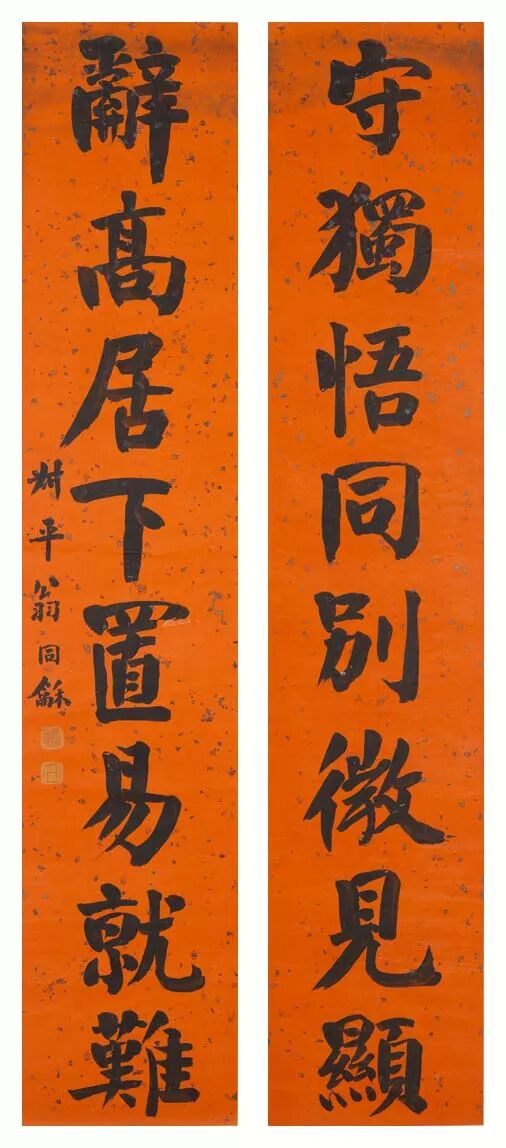 守獨悟同別微見顯
辭高居下置易就難
叔平翁同龢